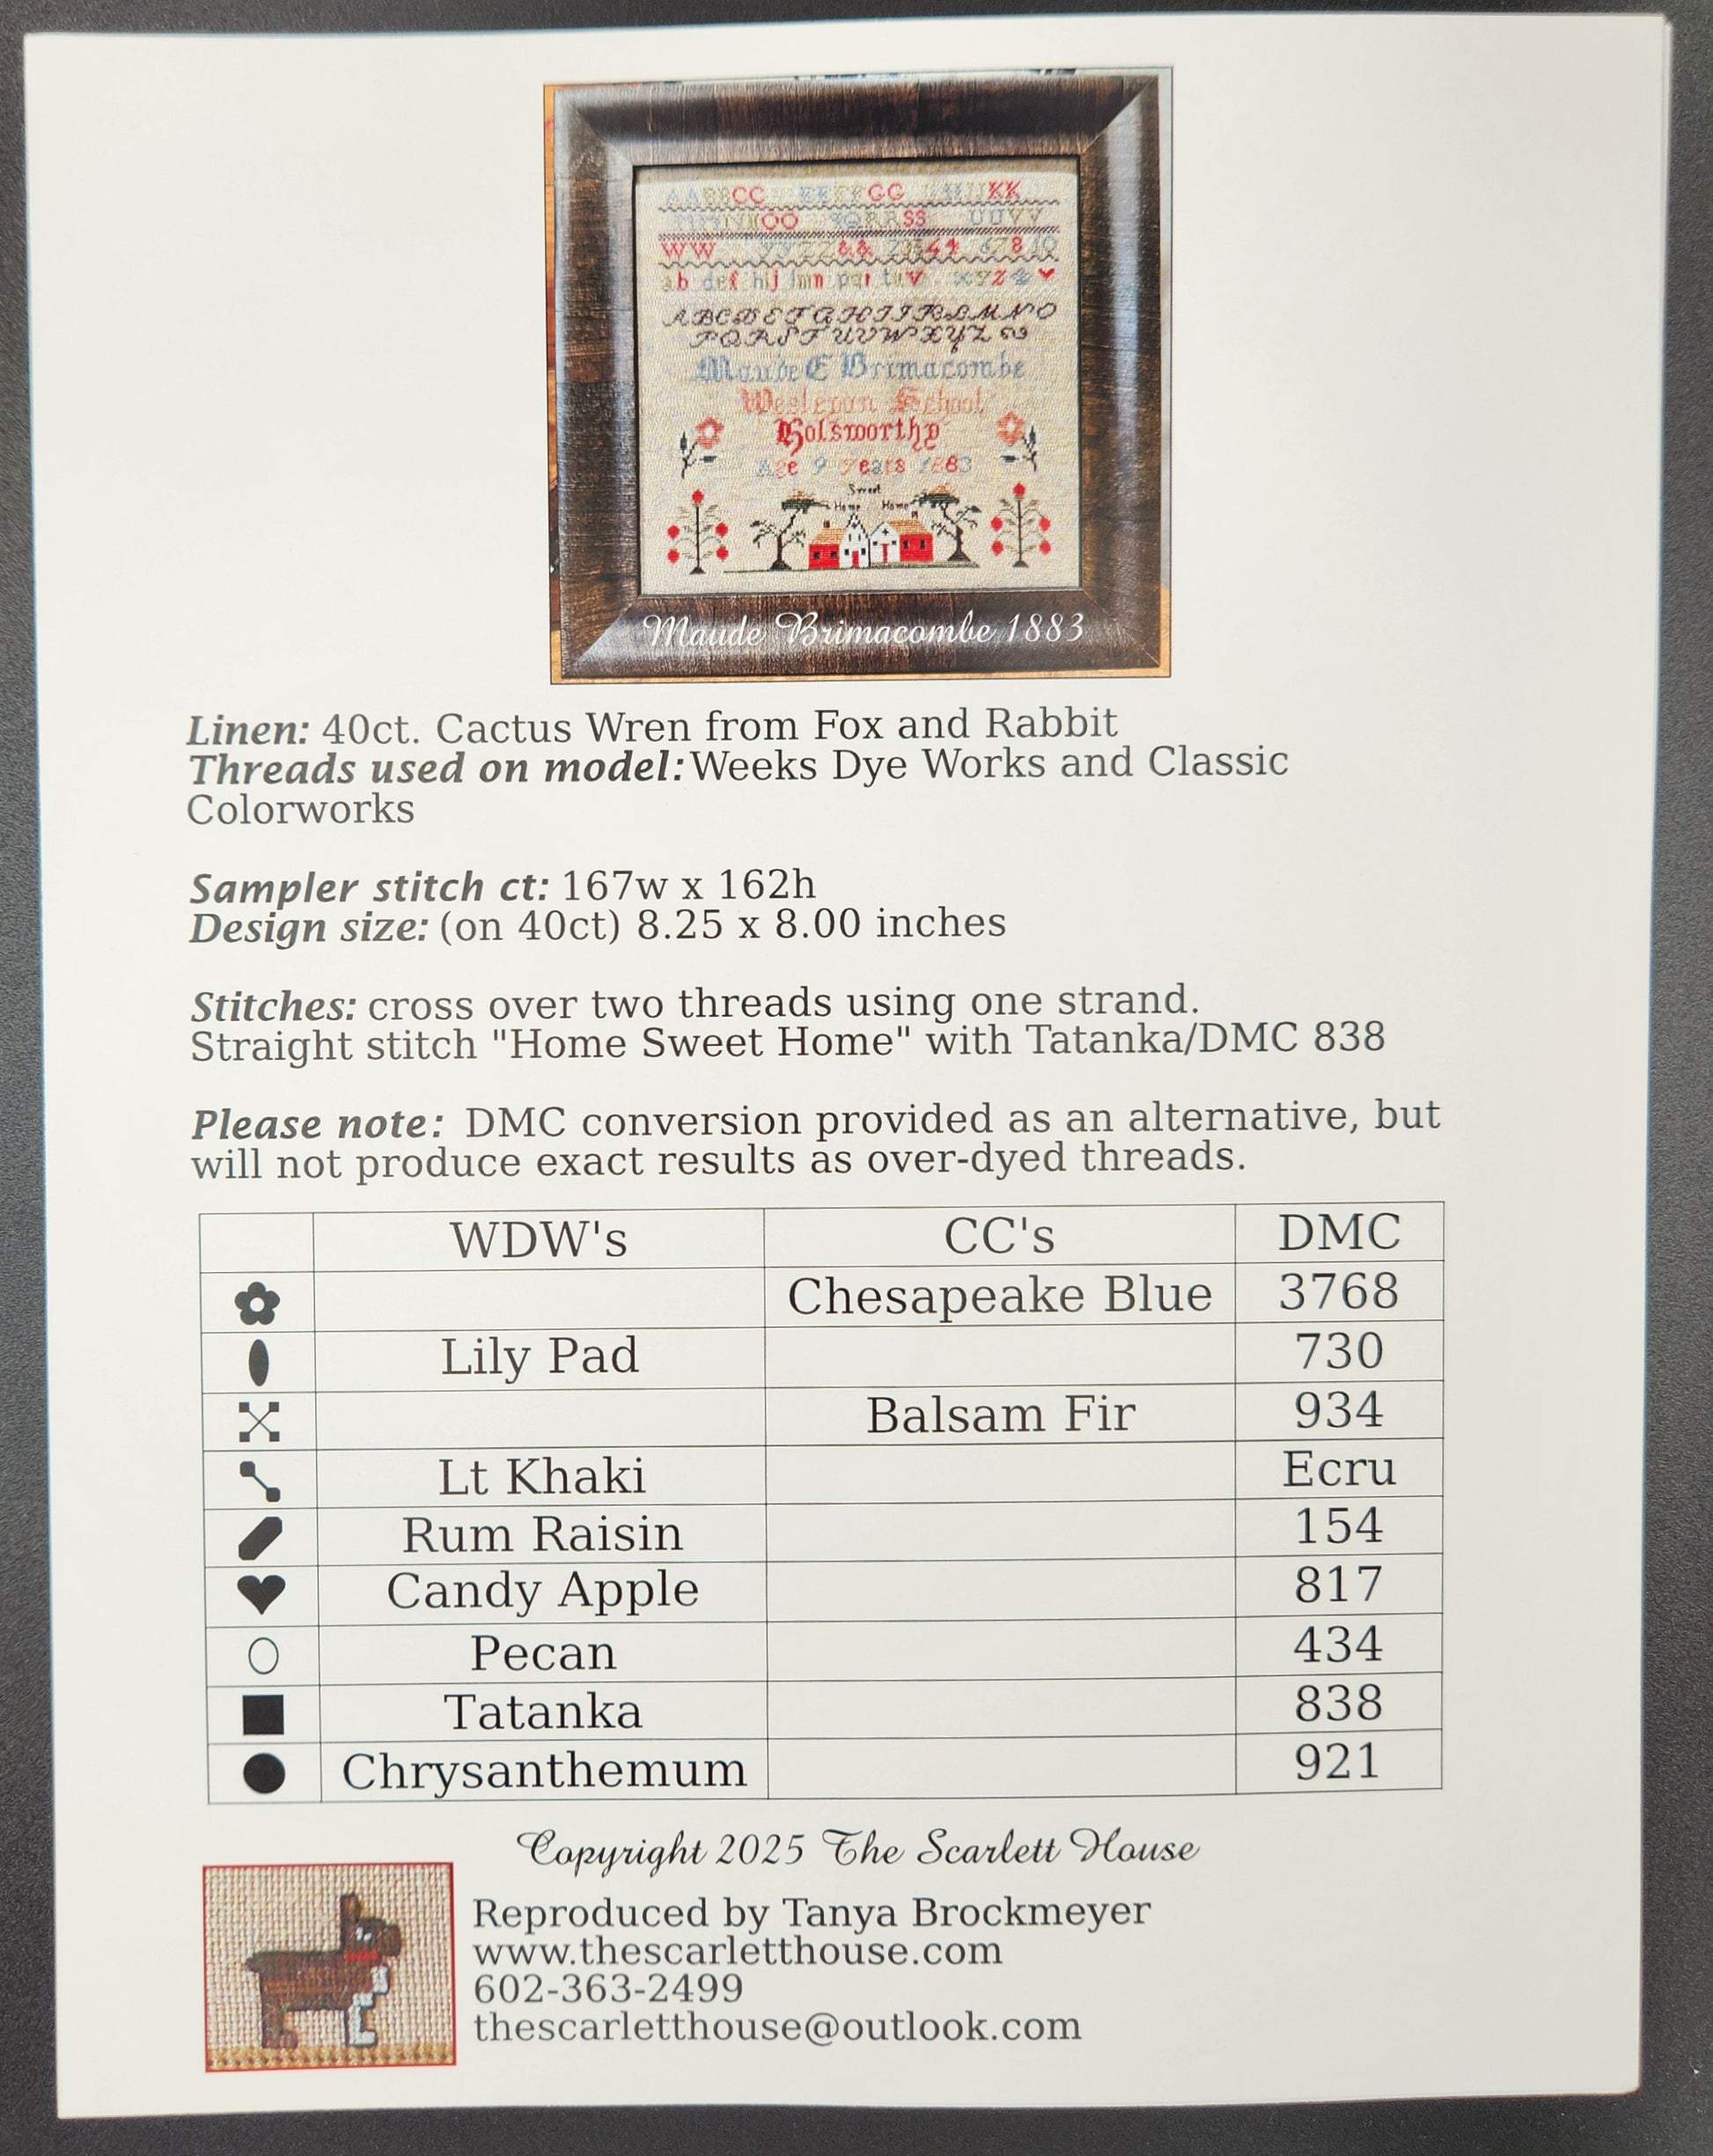 WW
ABCDEFGHIJKLMNO
PQRSTUVWXYZ
Maude E Brimacombe
Wesleyan School
Holsworthy
Age 9 years 1883
Sweet
Home Home
Maude Brimacombe 1883
Linen: 40ct. Cactus Wren from Fox and Rabbit
Threads used on model:Weeks Dye Works and Classic
Colorworks
Sampler stitch ct: 167w x 162h
Design size: (on 40ct) 8.25 x 8.00 inches
Stitches: cross over two threads using one strand.
Straight stitch "Home Sweet Home" with Tatanka/DMC 838
Please note: DMC conversion provided as an alternative, but
will not produce exact results as over-dyed threads.
WDW's CC's DMC
Chesapeake Blue 3768
Lily Pad 730
Balsam Fir 934
Lt Khaki Ecru
Rum Raisin 154
Candy Apple 817
Pecan 434
Tatanka 838
Chrysanthemum 921
Copyright 2025 The Scarlett House
Reproduced by Tanya Brockmeyer
www.thescarletthouse.com
602-363-2499
thescarletthouse@outlook.com